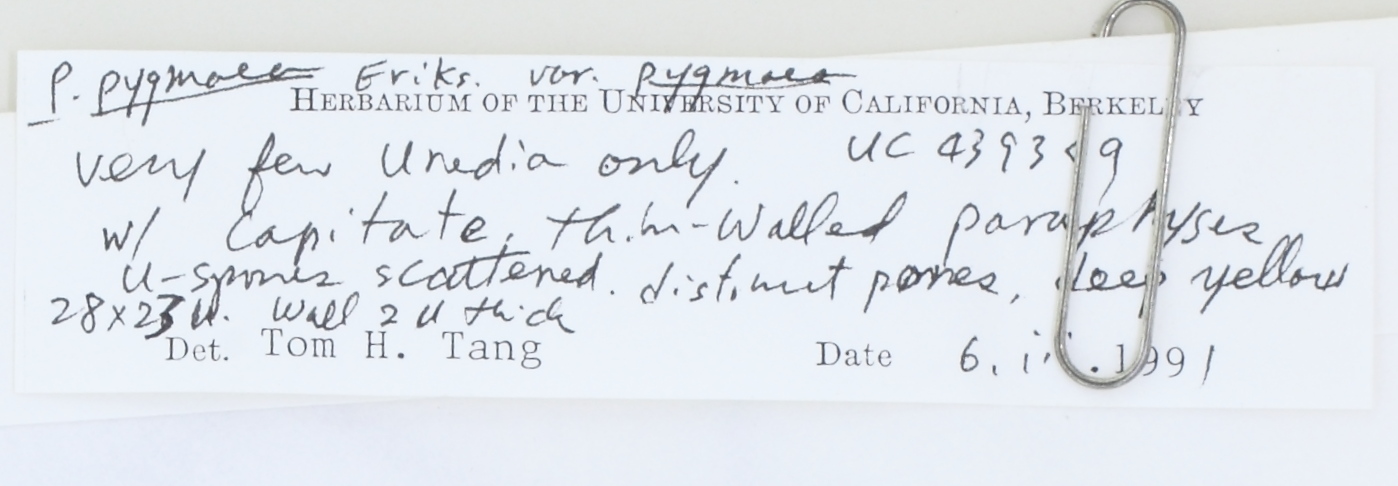 P. pygmaea Eriks. var. pygmaea
HERBARIUM OF THE UNIVERSITY OF CALIFORNIA, BERKELEY
very few Uredia only. UC
w/ Capitate, thin-walled paraphyses
U-spores scattered. distinct pores, deep yellow
28x23 u. Wall 2 u thick
Det. Tom H. Tang Date